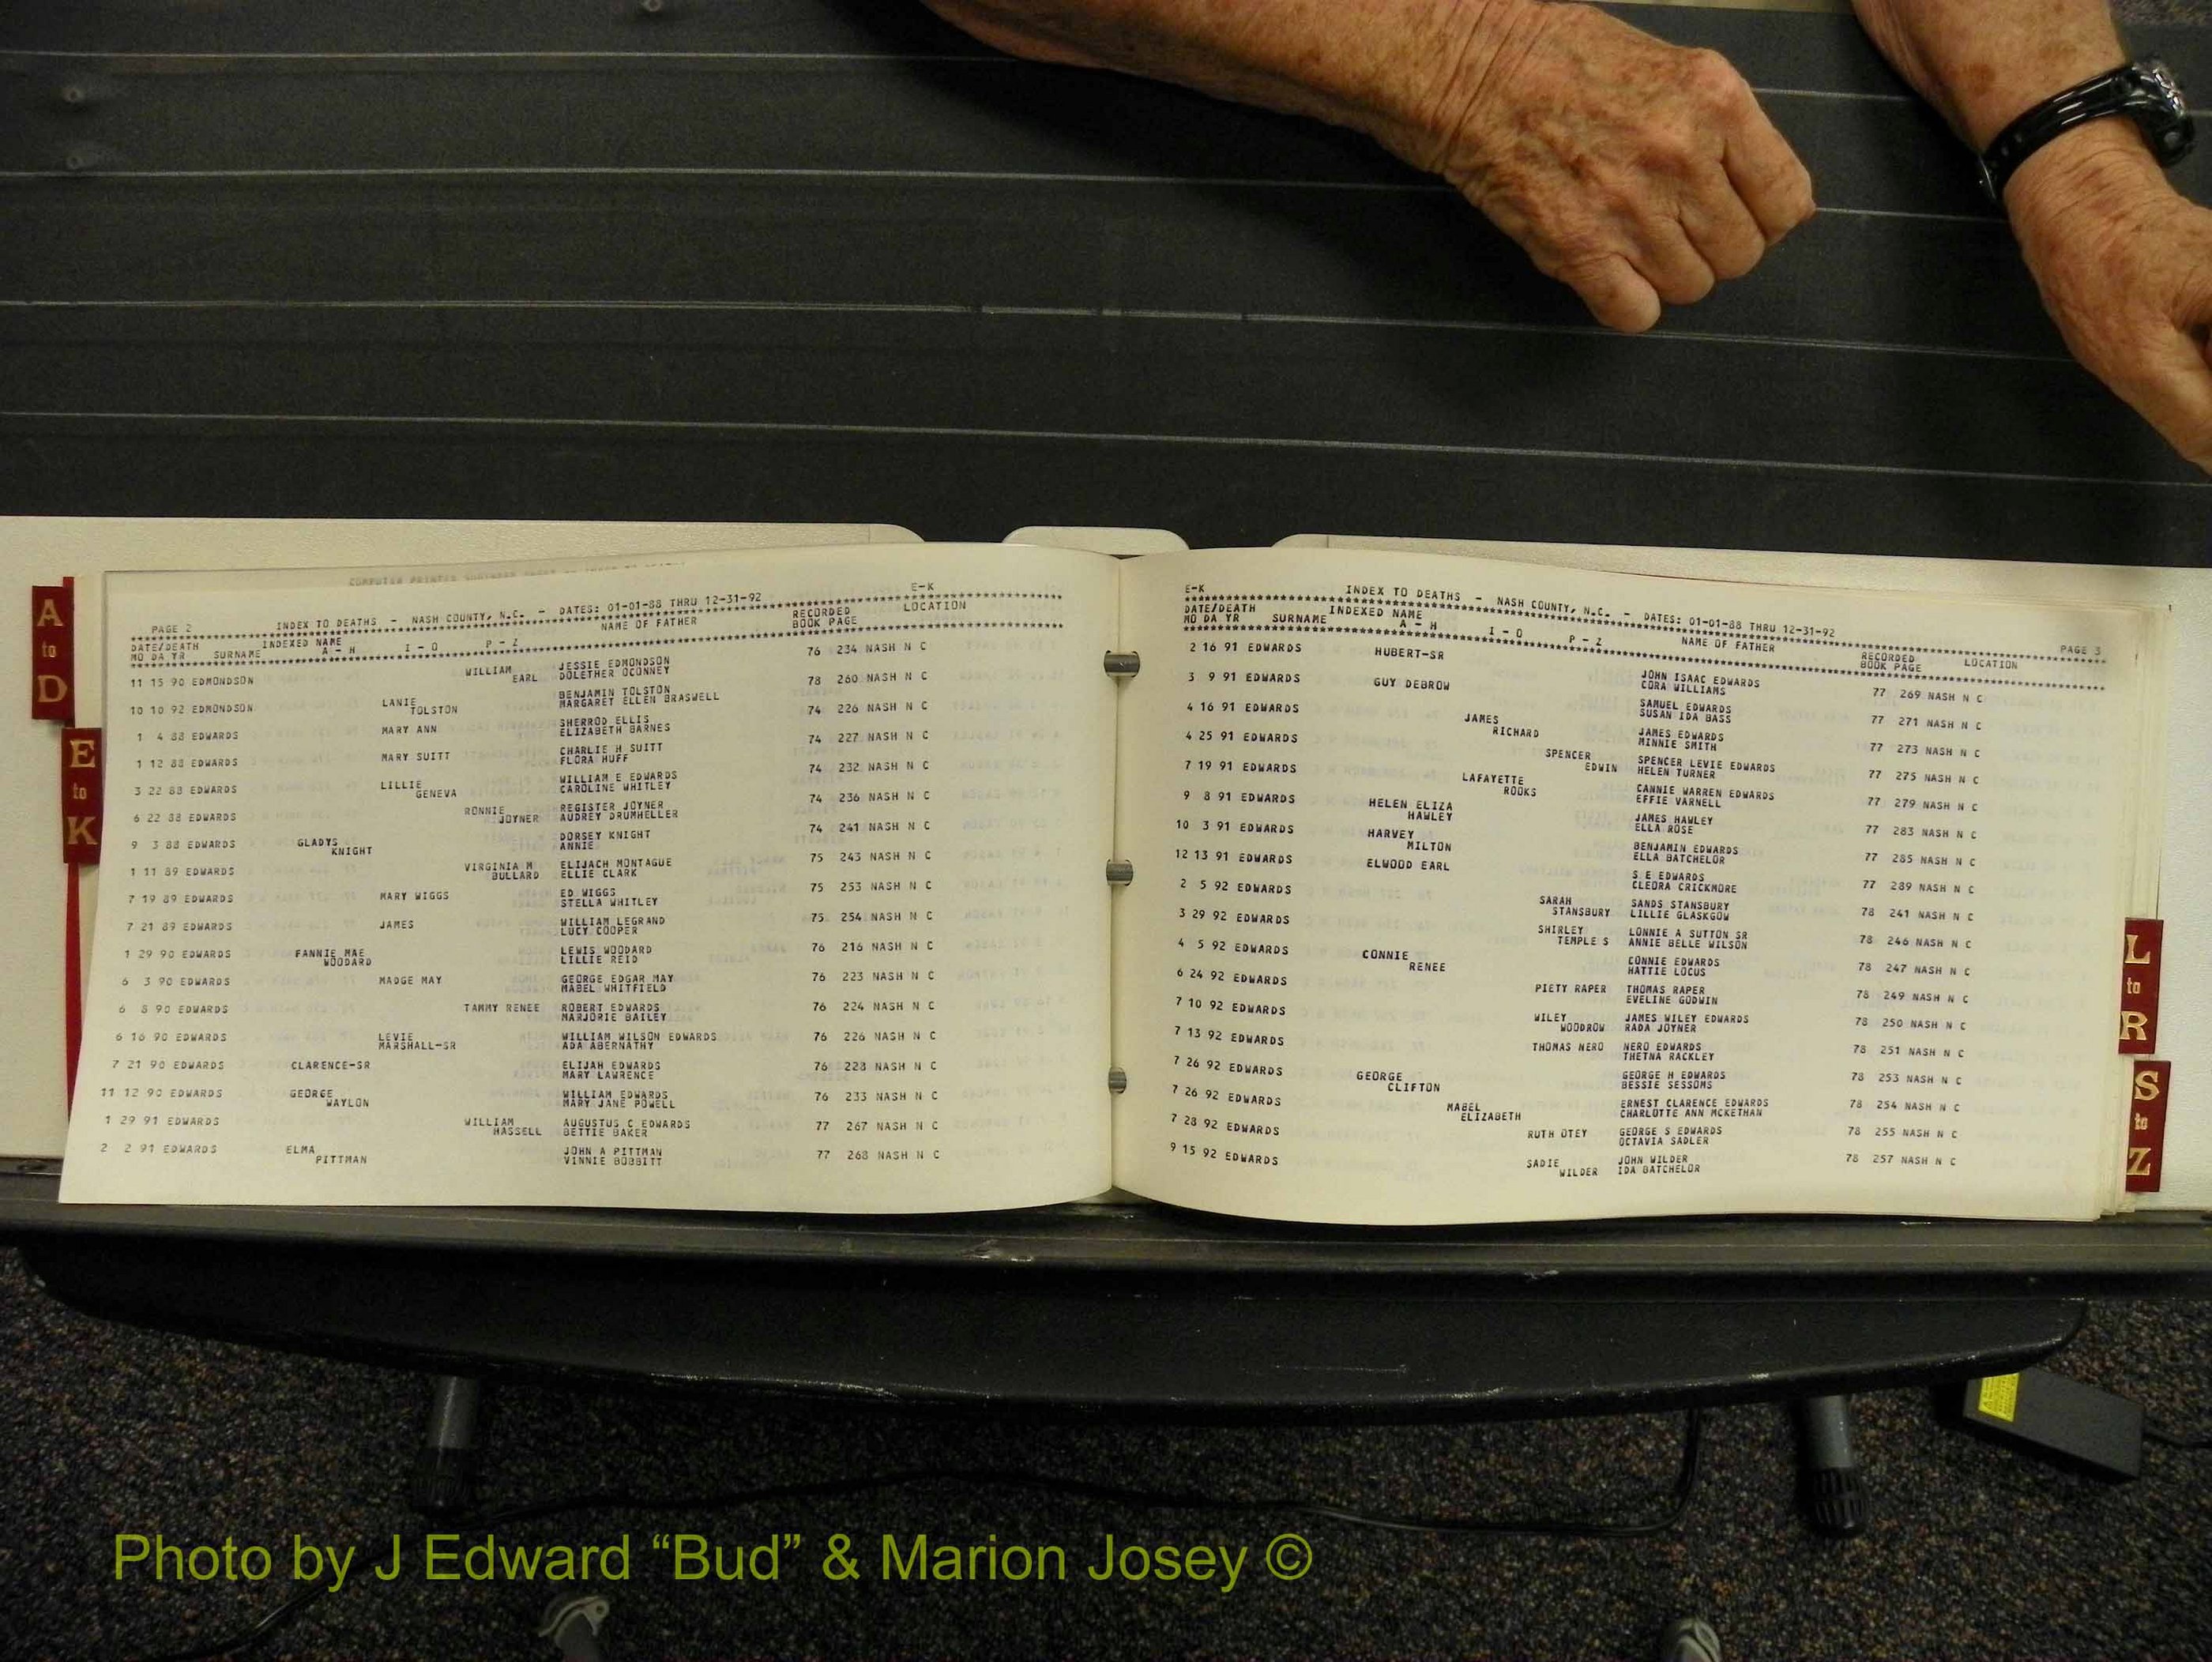 A
to
D
E
to
K
E-K
PAGE 2 INDEX TO DEATHS - NASH COUNTY, N.C. - DATES: 01-01-88 THRU 12-31-92
DATE/DEATH INDEXED NAME NAME OF FATHER RECORDED LOCATION
MO DA YR SURNAME A - H I - O P - Z BOOK PAGE
11 15 90 EDMONDSON WILLIAM JESSIE EDMONDSON 76 234 NASH N C
EARL DOLETHER OCONNEY
10 10 92 EDMONDSON LANIE BENJAMIN TOLSTON 78 260 NASH N C
TOLSTON MARGARET ELLEN BRASWELL
1 4 88 EDWARDS MARY ANN SHERROD ELLIS 74 226 NASH N C
ELIZABETH BARNES
1 12 88 EDWARDS MARY SUITT CHARLIE H SUITT 74 227 NASH N C
FLORA HUFF
3 22 88 EDWARDS LILLIE WILLIAM E EDWARDS 74 232 NASH N C
GENEVA CAROLINE WHITLEY
6 22 88 EDWARDS RONNIE REGISTER JOYNER 74 236 NASH N C
JOYNER AUDREY DRUMHELLER
9 3 88 EDWARDS GLADYS DORSEY KNIGHT 74 241 NASH N C
KNIGHT ANNIE
1 11 89 EDWARDS VIRGINIA M ELIJACH MONTAGUE 75 243 NASH N C
BULLARD ELLIE CLARK
7 19 89 EDWARDS MARY WIGGS ED WIGGS 75 253 NASH N C
STELLA WHITLEY
7 21 89 EDWARDS JAMES WILLIAM LEGRAND 75 254 NASH N C
LUCY COOPER
1 29 90 EDWARDS FANNIE MAE LEWIS WOODARD 76 216 NASH N C
WOODARD LILLIE REID
6 3 90 EDWARDS MADGE MAY GEORGE EDGAR MAY 76 223 NASH N C
MABEL WHITFIELD
6 8 90 EDWARDS TAMMY RENEE ROBERT EDWARDS 76 224 NASH N C
MARJORIE BAILEY
6 16 90 EDWARDS LEVIE WILLIAM WILSON EDWARDS 76 226 NASH N C
MARSHALL-SR ADA ABERNATHY
7 21 90 EDWARDS CLARENCE-SR ELIJAH EDWARDS 76 228 NASH N C
MARY LAWRENCE
11 12 90 EDWARDS GEORGE WILLIAM EDWARDS 76 233 NASH N C
WAYLON MARY JANE POWELL
1 29 91 EDWARDS WILLIAM AUGUSTUS C EDWARDS 77 267 NASH N C
HASSELL BETTIE BAKER
2 2 91 EDWARDS ELMA JOHN A PITTMAN 77 268 NASH N C
PITTMAN VINNIE BOBBITT
E-K INDEX TO DEATHS - NASH COUNTY, N.C. - DATES: 01-01-88 THRU 12-31-92 PAGE 3
DATE/DEATH INDEXED NAME NAME OF FATHER RECORDED LOCATION
MO DA YR SURNAME A - H I - O P - Z BOOK PAGE
2 16 91 EDWARDS HUBERT-SR JOHN ISAAC EDWARDS 77 269 NASH N C
CORA WILLIAMS
3 9 91 EDWARDS GUY DEBROW SAMUEL EDWARDS 77 271 NASH N C
SUSAN IDA BASS
4 16 91 EDWARDS JAMES JAMES EDWARDS 77 273 NASH N C
RICHARD MINNIE SMITH
4 25 91 EDWARDS SPENCER SPENCER LEVIE EDWARDS 77 275 NASH N C
EDWIN HELEN TURNER
7 19 91 EDWARDS LAFAYETTE CANNIE WARREN EDWARDS 77 279 NASH N C
ROOKS EFFIE VARNELL
9 8 91 EDWARDS HELEN ELIZA JAMES HAWLEY 77 283 NASH N C
HAWLEY ELLA ROSE
10 3 91 EDWARDS HARVEY BENJAMIN EDWARDS 77 285 NASH N C
MILTON ELLA BATCHELOR
12 13 91 EDWARDS ELWOOD EARL S E EDWARDS 77 289 NASH N C
CLEORA CRICKMORE
2 5 92 EDWARDS SARAH SANDS STANSBURY 78 241 NASH N C
STANSBURY LILLIE GLASKGOW
3 29 92 EDWARDS SHIRLEY LONNIE A SUTTON SR 78 246 NASH N C
TEMPLE S ANNIE BELLE WILSON
4 5 92 EDWARDS CONNIE CONNIE EDWARDS 78 247 NASH N C
RENEE HATTIE LOCUS
6 24 92 EDWARDS PIETY RAPER THOMAS RAPER 78 249 NASH N C
EVELINE GODWIN
7 10 92 EDWARDS WILEY JAMES WILEY EDWARDS 78 250 NASH N C
WOODROW RADA JOYNER
7 13 92 EDWARDS THOMAS NERO NERO EDWARDS 78 251 NASH N C
THETNA RACKLEY
7 26 92 EDWARDS GEORGE GEORGE H EDWARDS 78 253 NASH N C
CLIFTON BESSIE SESSOMS
7 26 92 EDWARDS MABEL ERNEST CLARENCE EDWARDS 78 254 NASH N C
ELIZABETH CHARLOTTE ANN MCKETHAN
7 28 92 EDWARDS RUTH OTEY GEORGE S EDWARDS 78 255 NASH N C
OCTAVIA SADLER
9 15 92 EDWARDS SADIE JOHN WILDER 78 257 NASH N C
WILDER IDA BATCHELOR
L
to
R
S
to
Z
Photo by J Edward “Bud” & Marion Josey ©